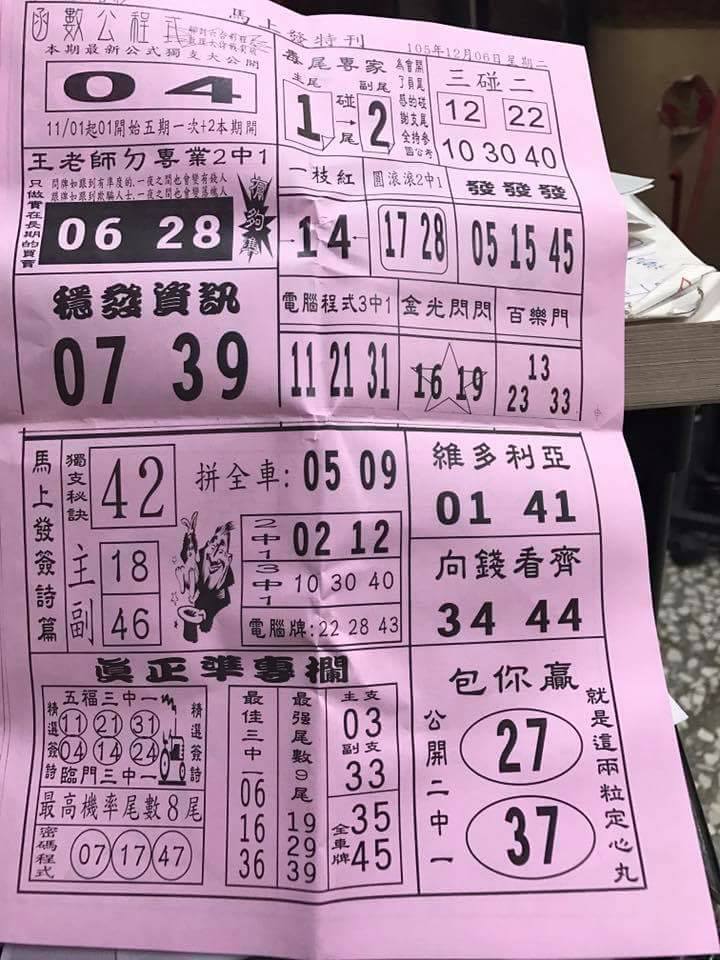 馬上發特刊
105年12月06日星期二
函數公程式
本期最新公式獨支大公開
04
11/01起01開始五期一次+2本期開
毒尾專家
主尾 碰 副尾
1→2
尾
三碰二
12 22
10 30 40
王老師力專業2中1
只做實在長期的買賣
開牌如跟到有準度的,一夜之間也會變有錢人
跟牌如跟到欺騙人士,一夜之間也會變落魄人
06 28
有夠準
一枝紅
14
圓滾滾2中1
17 28
發發發
05 15 45
穩發資訊
07 39
電腦程式3中1
11 21 31
金光閃閃
16 19
百樂門
13
23 33
馬上發簽詩篇
獨支秘訣
42
主 18
副 46
拼全車:05 09
2中1 02 12
3中1 10 30 40
電腦牌:22 28 43
維多利亞
01 41
向錢看齊
34 44
真正準專欄
五福三中一
精選簽詩
11 21 31
04 14 24
精選簽詩
臨門三中一
最高機率尾數8尾
密碼程式
07 17 47
最佳三中一
06
16
36
最强尾數9尾
19
29
39
主支
03
副支
33
全車牌
35
45
包你贏
公開二中一
27
37
就是這兩粒定心丸